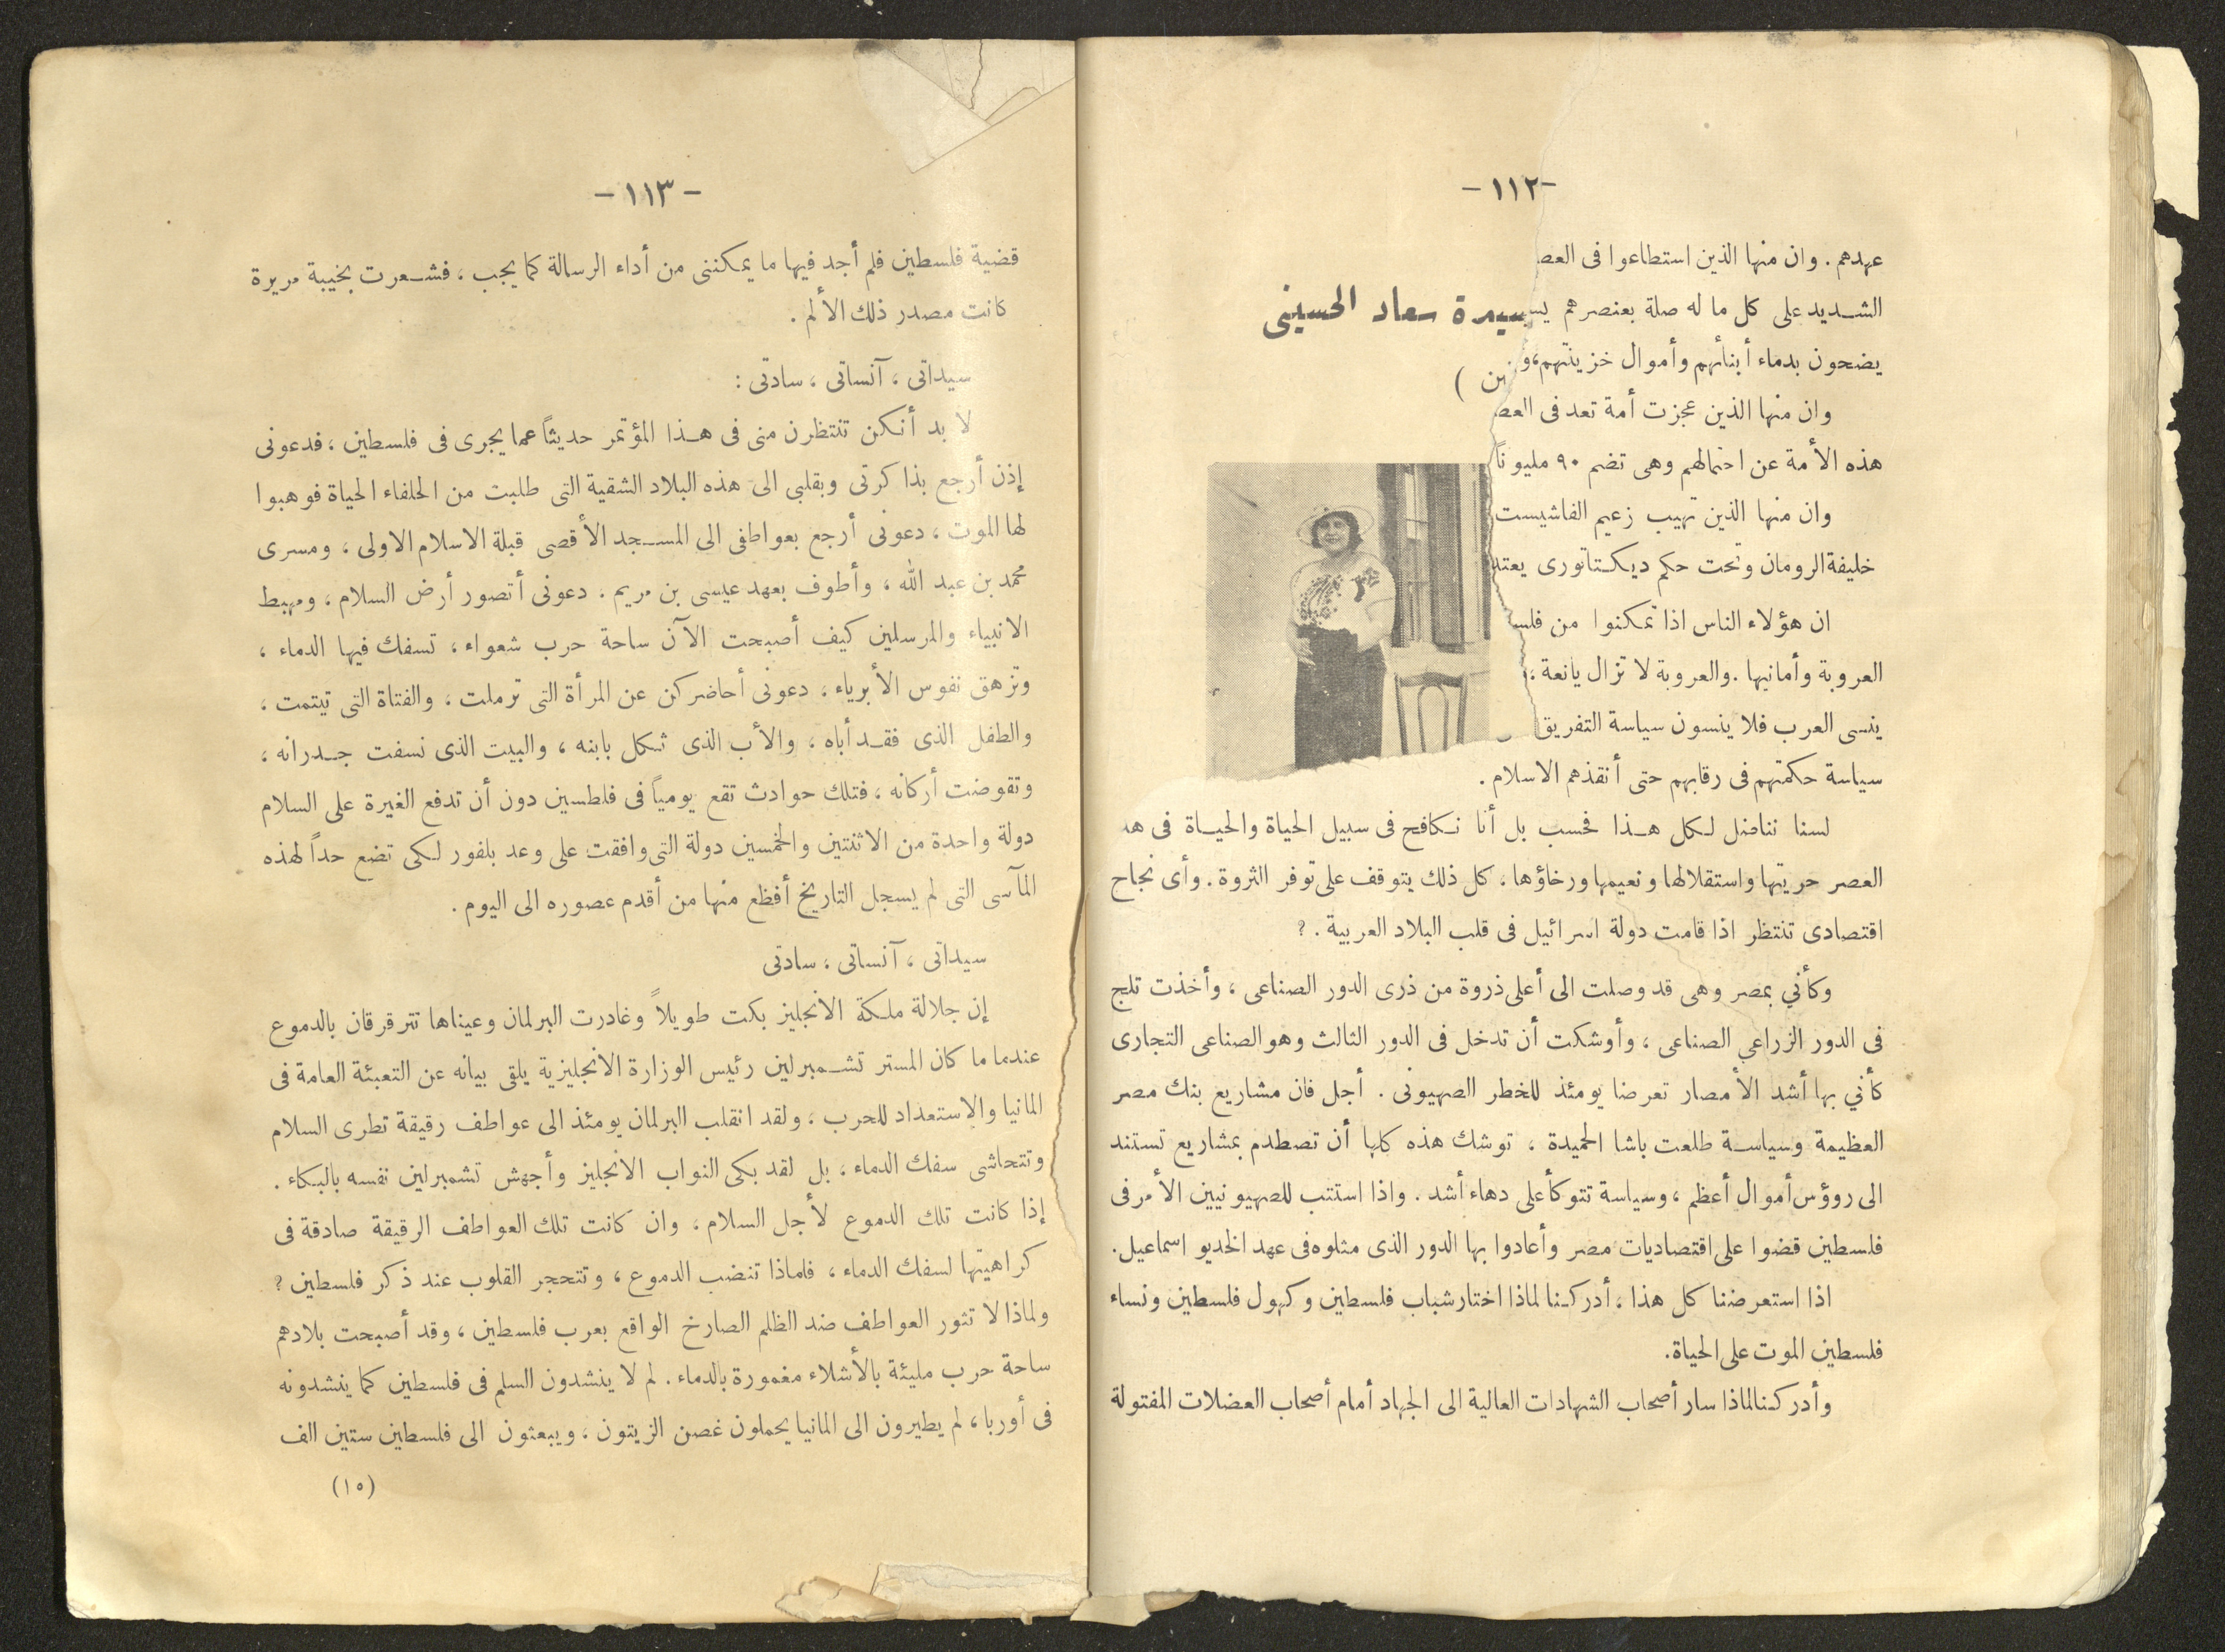 - ١١٢ -
عهدهم . وان منها الذين استطاعوا فى العص
الشديد على كل ما له صلة بعنصرهم يس
سيدة سعاد الحسينى
يضحون بدماء أبنائهم وأموال خزينتهم، و
ـين )
وان منها الذين عجزت أمة تعد فى العص
هذه الأمة عن احتمالهم وهى تضم ٩٠ مليوناً
وان منها الذين تهيب زعيم الفاشيست
خليفة الرومان وتحت حكم ديكتاتورى يعتد
ان هؤلاء الناس اذا تمكنوا من فلس
العروبة وأمانيها . والعروبة لا تزال يانعة ،
ينسى العرب فلا ينسون سياسة التفريق
سياسة حكمتهم فى رقابهم حتى أنقذهم الاسلام .
لسنا نناضل لكل هذا فحسب بل أنا نكافح فى سبيل الحياة والحياة فى هد
العصر حريتها واستقلالها ونعيمها ورخاؤها ، كل ذلك يتوقف على توفر الثروة . وأى نجاح
اقتصادى تنتظر اذا قامت دولة اسرائيل فى قلب البلاد العربية . ؟
وكأني بمصر وهى قد وصلت الى أعلى ذروة من ذرى الدور الصناعى ، وأخذت تلج
فى الدور الزراعي الصناعى ، وأوشكت أن تدخل فى الدور الثالث وهو الصناعى التجارى
كأني بها أشد الأمصار تعرضا يومئذ للخطر الصهيونى . أجل فان مشاريع بنك مصر
العظيمة وسياسة طلعت باشا الحميدة ، توشك هذه كلها أن تصطدم بمشاريع تستند
الى رووُس أموال أعظم ، وسياسة تتوكأ على دهاء أشد . واذا استتب للصهيونيين الأمر فى
فلسطين قضوا على اقتصاديات مصر وأعادوا بها الدور الذى مثلوه فى عهد الخديو اسماعيل .
اذا استعرضنا كل هذا ، أدركنا لماذا اختار شباب فلسطين وكهول فلسطين ونساء
فلسطين الموت على الحياة .
وأدركنا لماذا سار أصحاب الشهادات العالية الى الجهاد أمام أصحاب العضلات المفتولة
- ١١٣ -
قضية فلسطين فلم أجد فيها ما يمكننى من أداء الرسالة كما يجب ، فشعرت بخيبة مريرة
كانت مصدر ذلك الألم .
سيداتى ، آنساتى ، سادتى :
لا بد أنكن تنتظرن منى فى هذا المؤتمر حديثاً عما يجرى فى فلسطين ، فدعونى
إذن أرجع بذاكرتى وبقلبى الى هذه البلاد الشقية التى طلبت من الحلفاء الحياة فوهبوا
لها الموت ، دعونى أرجع بعواطفى الى المسجد الأقصى قبلة الاسلام الاولى ، ومسرى
محمد بن عبد الله ، وأطوف بعهد عيسى بن مريم . دعونى أتصور أرض السلام ، ومهبط
الانبياء والمرسلين كيف أصبحت الآن ساحة حرب شعواء ، تسفك فيها الدماء ،
وتزهق نفوس الأبرياء ، دعونى أحاضركن عن المرأة التى ترملت ، والفتاة التى تيتمت ،
والطفل الذى فقد أباه ، والأب الذى ثكل بابنه ، والبيت الذى نسفت جدرانه ،
وتقوضت أركانه ، فتلك حوادث تقع يومياً فى فلطسين دون أن تدفع الغيرة على السلام
دولة واحدة من الاثنتين والخمسين دولة التى وافقت على وعد بلفور لكى تضع حداً لهذه
المآسى التى لم يسجل التاريخ أفظع منها من أقدم عصوره الى اليوم .
سيداتى ، آنساتى ، سادتى
إن جلالة ملكة الانجليز بكت طويلاً وغادرت البرلمان وعيناها تترقرقان بالدموع
عندما ما كان المستر تشمبرلين رئيس الوزارة الانجليزية يلقى بيانه عن التعبئة العامة فى
المانيا والإستعداد للحرب ، ولقد انقلب البرلمان يومئذ الى عواطف رقيقة تطرى السلام
وتتحاشى سفك الدماء ، بل لقد بكى النواب الانجليز وأجهش تشمبرلين نفسه بالبكاء .
إذا كانت تلك الدموع لأجل السلام ، وان كانت تلك العواطف الرقيقة صادقة فى
كراهيتها لسفك الدماء ، فلماذا تنضب الدموع ، وتتحجر القلوب عند ذكر فلسطين ؟
ولماذا لا تثور العواطف ضد الظلم الصارخ الواقع بعرب فلسطين ، وقد أصبحت بلادهم
ساحة حرب مليئة بالأشلاء مغمورة بالدماء . لم لا ينشدون السلم فى فلسطين كما ينشدونه
فى أوربا ، لم يطيرون الى المانيا يحملون غصن الزيتون ، ويبعثون الى فلسطين ستين الف
(١٥)